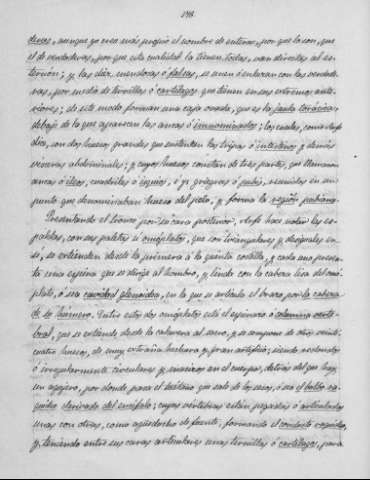 148.
deras, aunque yo creo más propio el nombre de enteras, por que lo son, que
el de verdaderas, por que esta cualidad la tienen todas, van directas al es-
ternón; y las diez, mendosas ó falsas, se unen ó enlazan con las verdade-
ras, por medio de ternillas ó cartílagos que tienen en sus extremos ante-
riores; de este modo forman una caja ovada, que es la jaula torácica
debajo de la que aparecen las ancas ó innominados; los cuales, como
dice, son dos huesos grandes que sostienen las tripas ó intestinos y demás
vísceras abdominales; y cuyos huesos constan de tres partes, que llamaron
ancas ó íleos, cuadriles ó isquios, é yngriegras ó pubis, reunidos en un
punto que denominaban huesos del pelo, y forma la región pubiana.
Presentando el tronco por su cara posterior, hace notar las es-
paldas, con sus paletas ó omóplatos, que son triangulares y desiguales
se extienden desde la primera á la quinta costilla, y cada una presen-
ta una espina que se dirige al hombro, y linda con la cabeza lisa del omó-
plato, ó sea cavidad glenoidea, en la que se articula el brazo por la cabeza
de su húmero. Entre estos dos omóplatos está el espinazo ó columna verte-
bral, que se extiende desde la calavera al sacro, y se compone de veinti-
cuatro huesos, de muy extraña hechura y gran artificio; siendo redondos
ó irregularmente circulares y macizos en el cuerpo, detrás del que hay
un agujero, por donde pasa el tuétano que sale de los sesos, ó sea el bulbo ra-
quideo derivado del encéfalo; cuyas vertebras están pegadas ó articuladas
unas con otras, como aguaducho de fuente, formando el conducto raquideo,
y teniendo entre sus caras articulares unas ternillas ó cartílagos, para